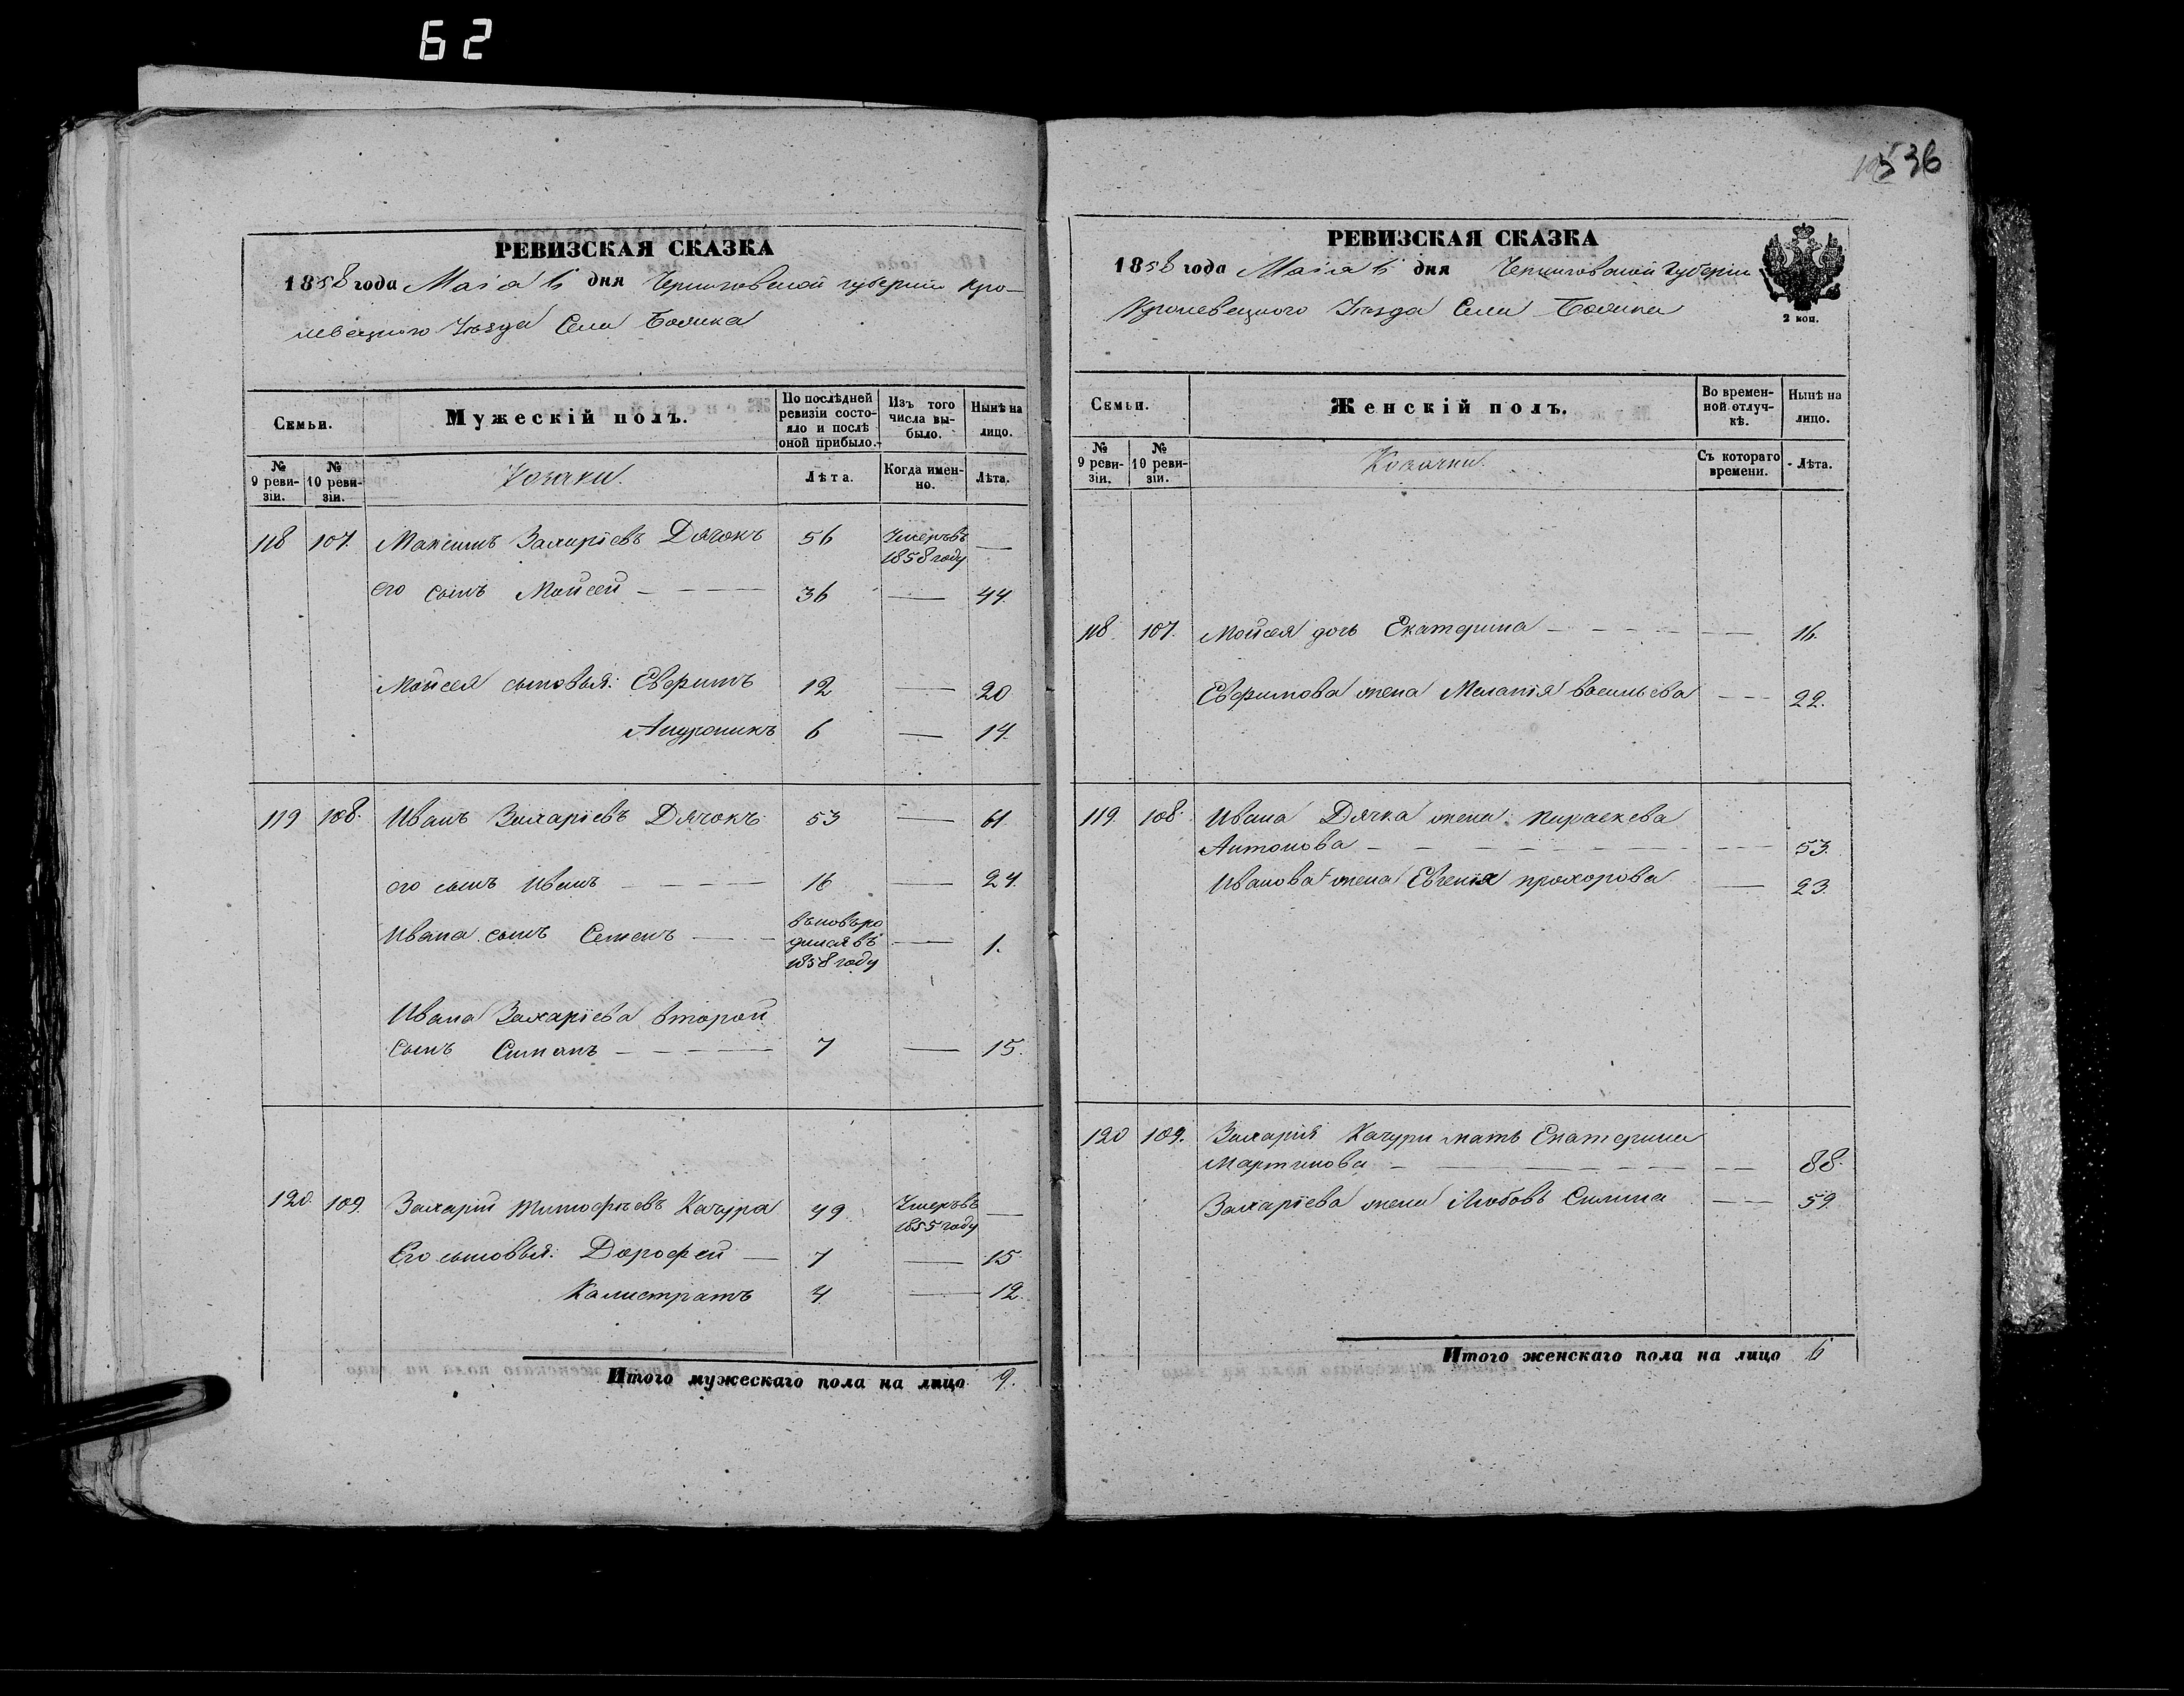 62
536
РЕВИЗСКАЯ СКАЗКА
1858 года Маія 6 дня Черниговской губерніи Кро-
левецкого Уезда Села
Семьи.
Мужескій полъ.
По послѣдней ревизіи состо-
яло и послѣ оной прибыло.
Изъ того числа вы-
было.
Нынѣ на лицо.
№ 9 реви-
зіи.
№ 10 реви-
зіи.
Козаки.
Лѣта.
Когда имен-
но.
Лѣта.
118 107. Максимъ Захаріевъ Дячокъ 56 Умеръ въ —
1858 году
его сынъ Мойсей — 36 — 44.
Мойсея сыновья: Евфимъ 12 — 20
Андроникъ 6 — 14.
119 108. Иванъ Захаріевъ Дячокъ 53 — 61
его сынъ Иванъ — 16 — 24.
Ивана сынъ Семенъ — вновь ро
дился въ — 1.
1858 году
Ивана Захаріева второй
сынъ — 7 — 15.
120. 109. Захарій Тимофѣевъ Качура 49 Умеръ въ —
1855 году
Его сыновья: Дорофей — 7 — 15
Калистратъ 4 — 12.
Итого мужескаго пола на лицо 9.
РЕВИЗСКАЯ СКАЗКА
1858 года Маія 6 дня Черниговской губерніи
Кролевецкого Уезда Села
2 коп.
Семьи.
Женскій полъ.
Во времен-
ной отлуч-
кѣ.
Нынѣ на лицо.
№ 9 реви-
зіи.
№ 10 реви-
зіи.
Козачки.
Съ котораго времени.
Лѣта.
118. 107. Мойсея дочь Екатерина — — 16.
Евфимова жена Меланія Васильева — 22.
119. 108. Ивана Дячка жена Параскева
Антонова — — 53.
Иванова жена Евгенія Прохорова — 23.
120 109. Захарія Качуры мать Екатерина
Мартинова — — 88.
Захаріева жена Любовь Силина — 59.
Итого женскаго пола на лицо 6